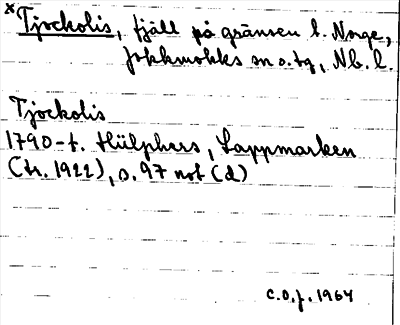 *Tjockolis, fjäll på gränsen t. Norge,
Jokkmokks sn o. tg, Nb. l.
Tjockolis
1790-t. Hülphers, Lappmarken
(tr. 1922), s. 97 not (d)
C.O.J. 1964